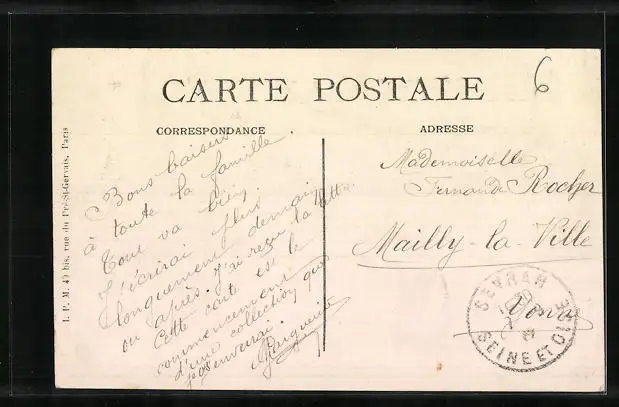 CARTE POSTALE
6
CORRESPONDANCE
ADRESSE
Bons baisers
à toute la famille.
Tout va bien
J'écrirai plus
longuement demain
ou après. J'ai reçu la lettre.
Cette carte est le
commencement
d'une collection que
Marguerite
Mademoiselle
Fernande Rocher
Mailly-la-Ville
Yonne
SEVRAN
SEINE ET OISE
I. P. M. 49 bis, rue du Pré-St-Gervais, Paris